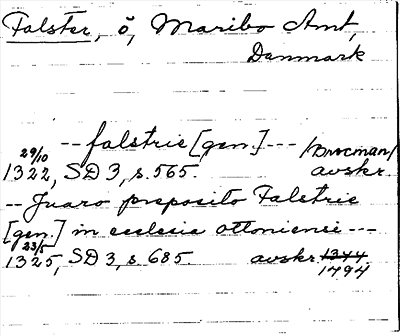 Falster, ö, Maribo Amt,
Danmark
-- falstrie [gen.] --- /Brocman/
29/10
1322, SD 3, s. 565. avskr.
-- Juaro preposito Falstrie
[gen.] in ecclesia ottoniensi ---
23/5
1325, SD 3, s. 685. avskr. 1344
1794